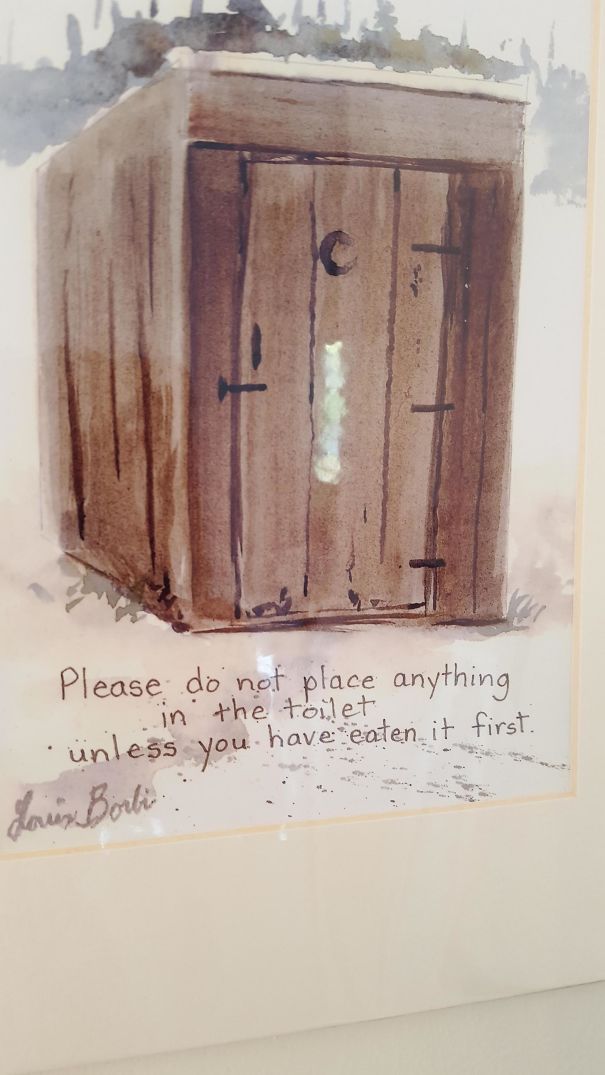 Please do not place anything
in the toilet
unless you have eaten it first.
Louis Borbi